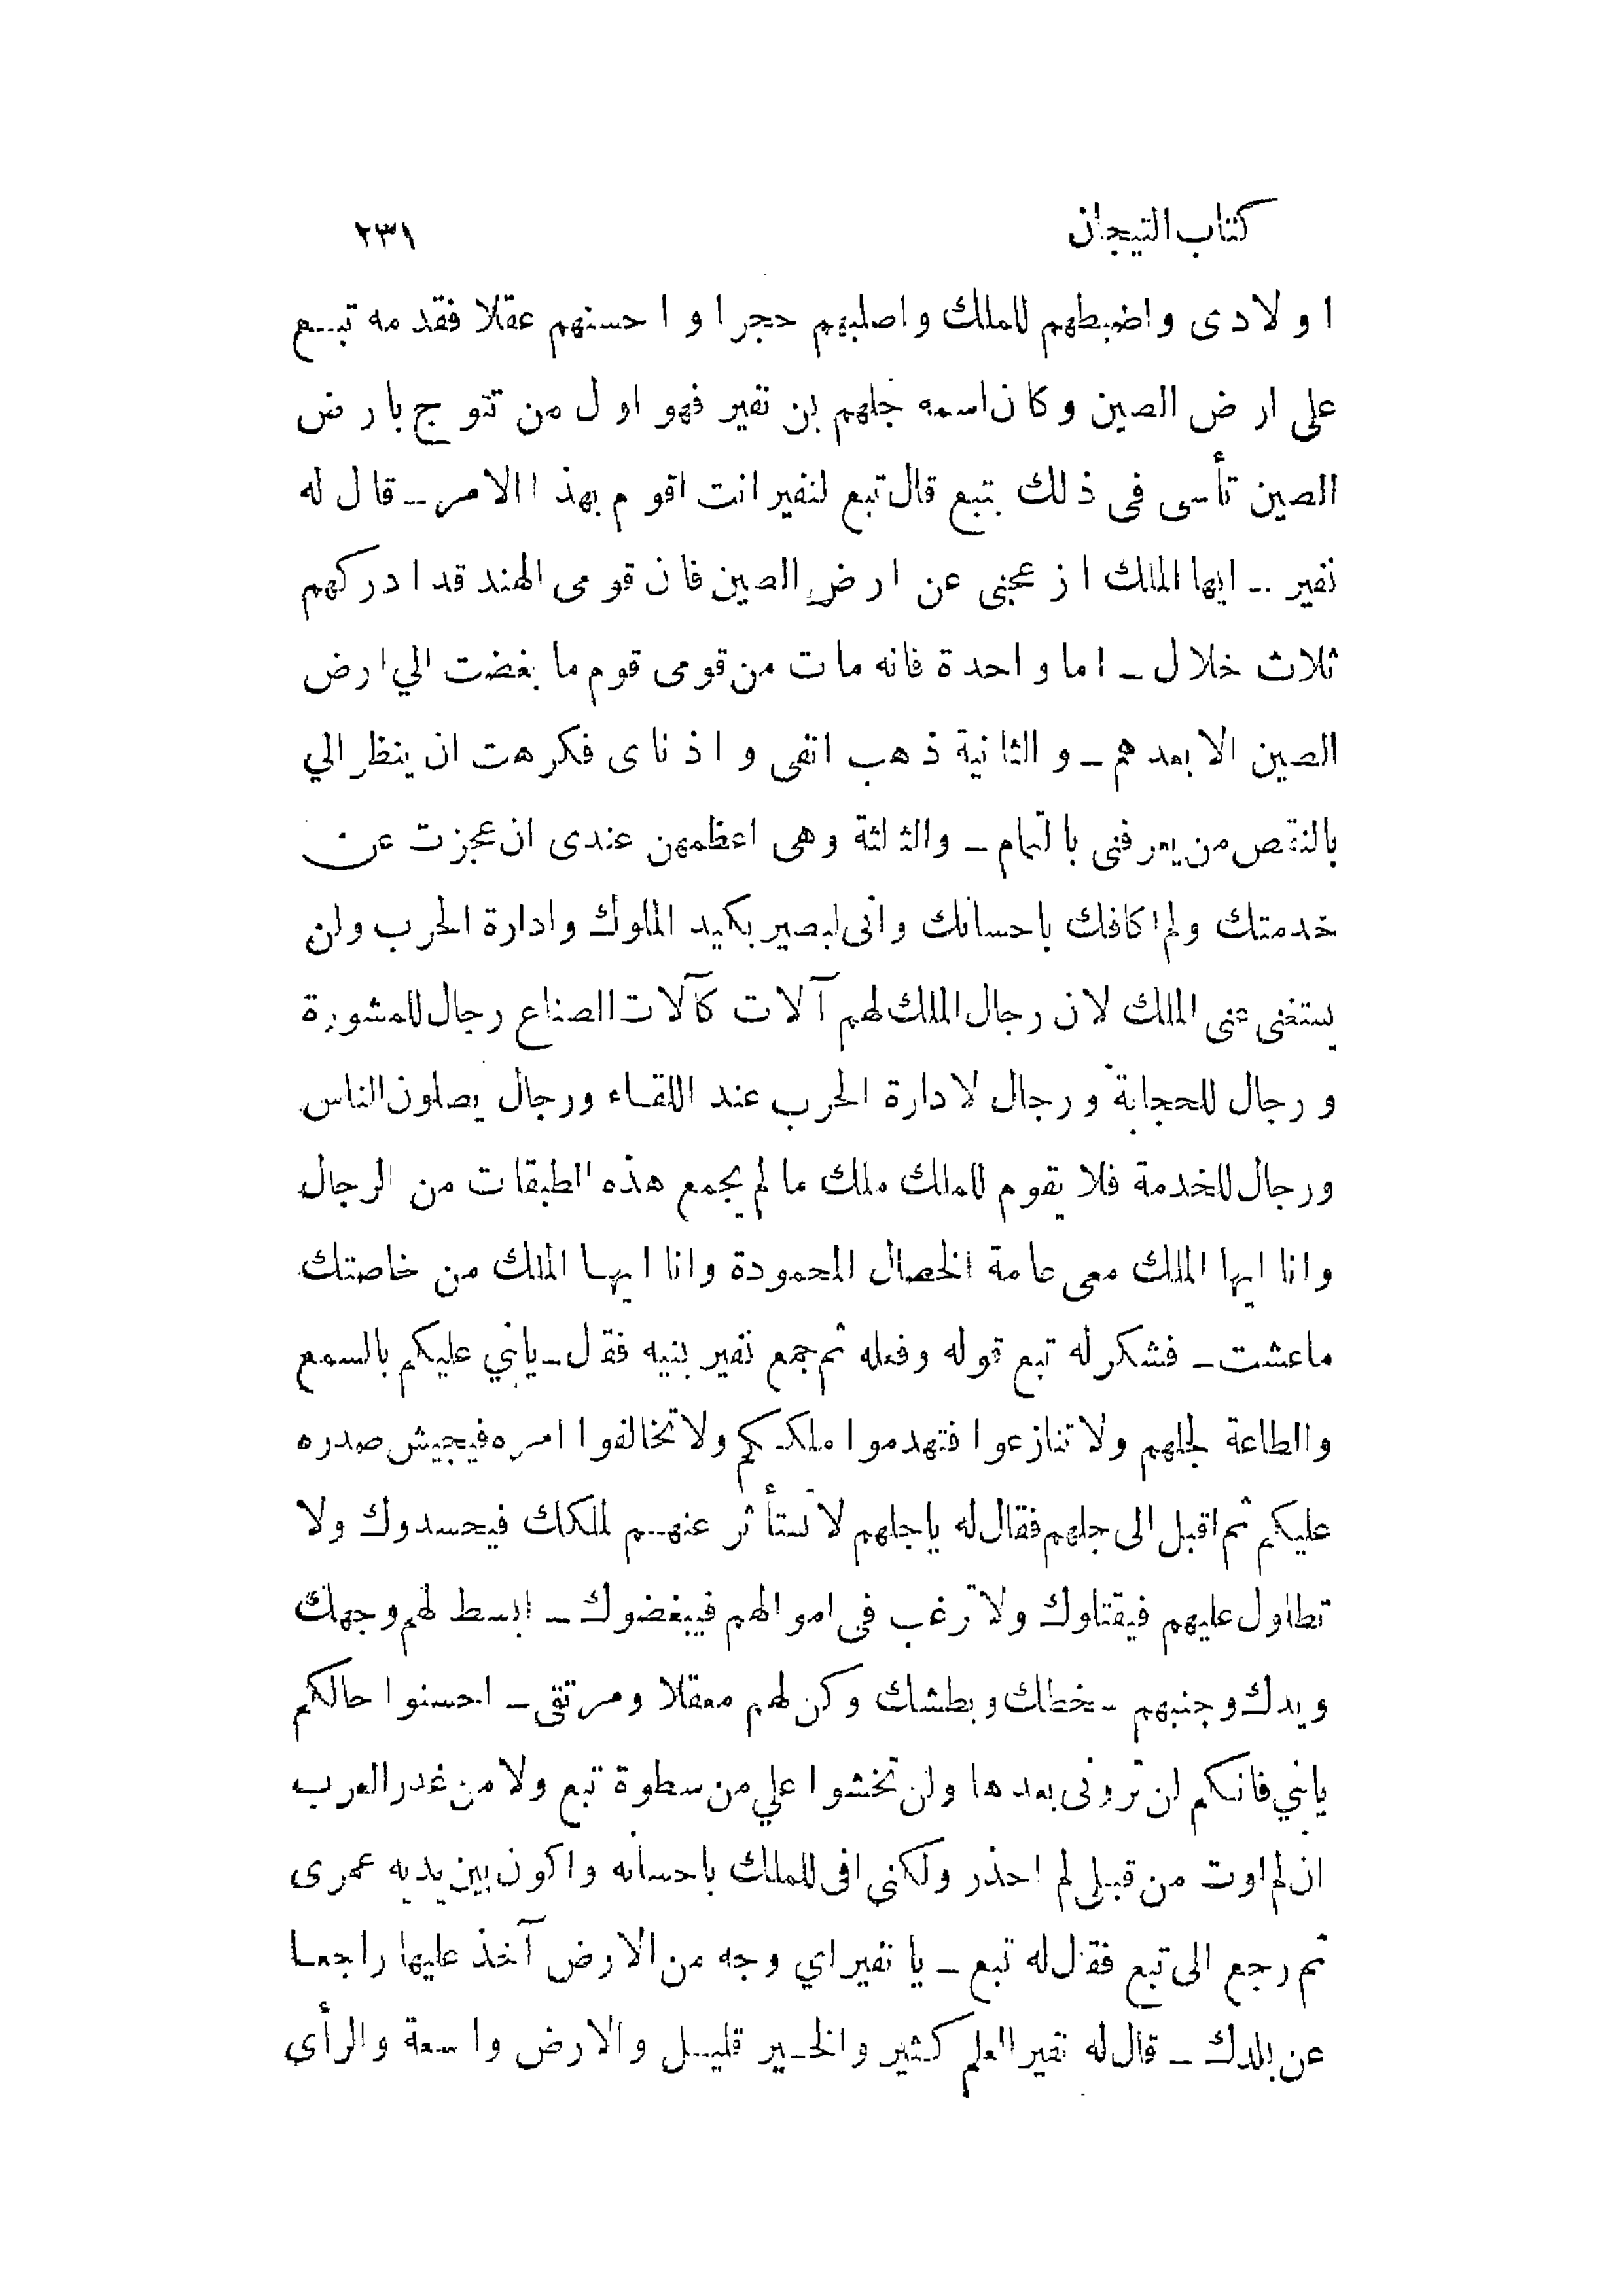 كتاب التيجان ٢٣١
اولادى واضبطهم للملك واصلبهم حجرا واحسنهم عقلا فقدمه تبع
على ارض الصين وكان اسمه جلهم بن نفير فهو اول من تتوج بارض
الصين تأسى فى ذلك بتبع قال تبع لنفير انت اقوم بهذا الامر ـ قال له
نفير ـ ايها الملك ازعجنى عن ارض الصين فان قومى الهند قد ادركهم
ثلاث خلال ـ اما واحدة فانه مات من قومى قوم ما بغضت الي ارض
الصين الا بعدهم ـ والثانية ذهب انفى واذناى فكرهت ان ينظر الي
بالنقص من يعرفنى بالتمام ـ والثالثة وهى اعظمهن عندى ان عجزت عن
خدمتك ولم اكافك باحسانك وانى لبصير بكيد الملوك وادارة الحرب ولن
يستغنى عنى الملك لان رجال الملك لهم آلات كآلات الصناع رجال للمشورة
ورجال للحجابة ورجال لادارة الحرب عند اللقاء ورجال يصلون الناس
ورجال للخدمة فلا يقوم للملك ملك ما لم يجمع هذه الطبقات من الرجال
وانا ايها الملك معى عامة الخصال المحمودة وانا ايها الملك من خاصتك
ماعشت ـ فشكر له تبع قوله وفعله ثم جمع نفير بنيه فقال ـ يابني عليكم بالسمع
والطاعة لجلهم ولا تنازعوا فتهدموا ملككم ولا تخالفوا امره فيجيش صدره
عليكم ثم اقبل الى جلهم فقال له ياجلهم لا تستأثر عنهم لملكك فيحسدوك ولا
تطاول عليهم فيقتلوك ولا ترغب فى اموالهم فيبغضوك ـ ابسط لهم وجهك
ويدك وجنبهم سخطك وبطشك وكن لهم معقلا ومرتقى ـ احسنوا حالكم
يابني فانكم لن ترونى بعدها ولن تخشوا علي من سطوة تبع ولا من غدر العرب
ان لم اوت من قبلى لم احذر ولكنى افى للملك باحسانه واكون بين يديه عمرى
ثم رجع الى تبع فقال له تبع ـ يا نفير اي وجه من الارض آخذ عليها راجعا
عن بلدك ـ قال له نفير العلم كثير والخير قليل والارض واسعة والرأى